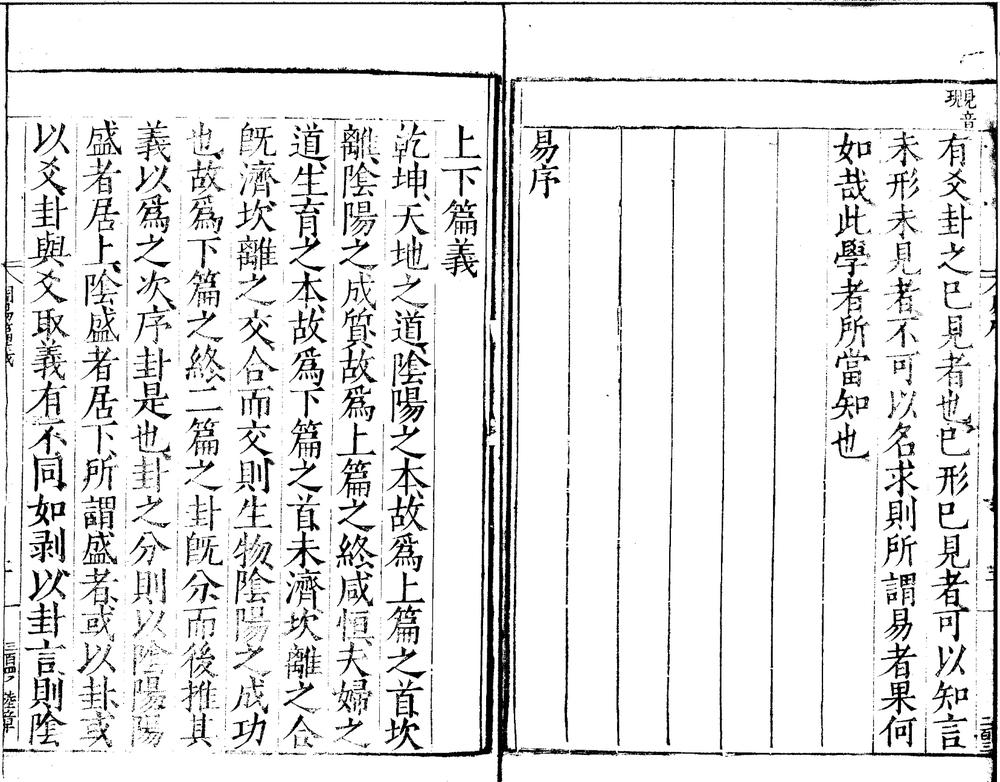 見音
現
有爻卦之已見者也已形已見者可以知言
未形未見者不可以名求則所謂易者果何
如哉此學者所當知也
易序
上下篇義
乾坤天地之道陰陽之本故爲上篇之首坎
離陰陽之成質故爲上篇之終咸恒夫婦之
道生育之本故爲下篇之首未濟坎離之合
旣濟坎離之交合而交則生物陰陽之成功
也故爲下篇之終二篇之卦旣分而後推其
義以爲之次序卦是也卦之分則以陰陽陽
盛者居上陰盛者居下所謂盛者或以卦或
以爻卦與爻取義有不同如剥以卦言則陰